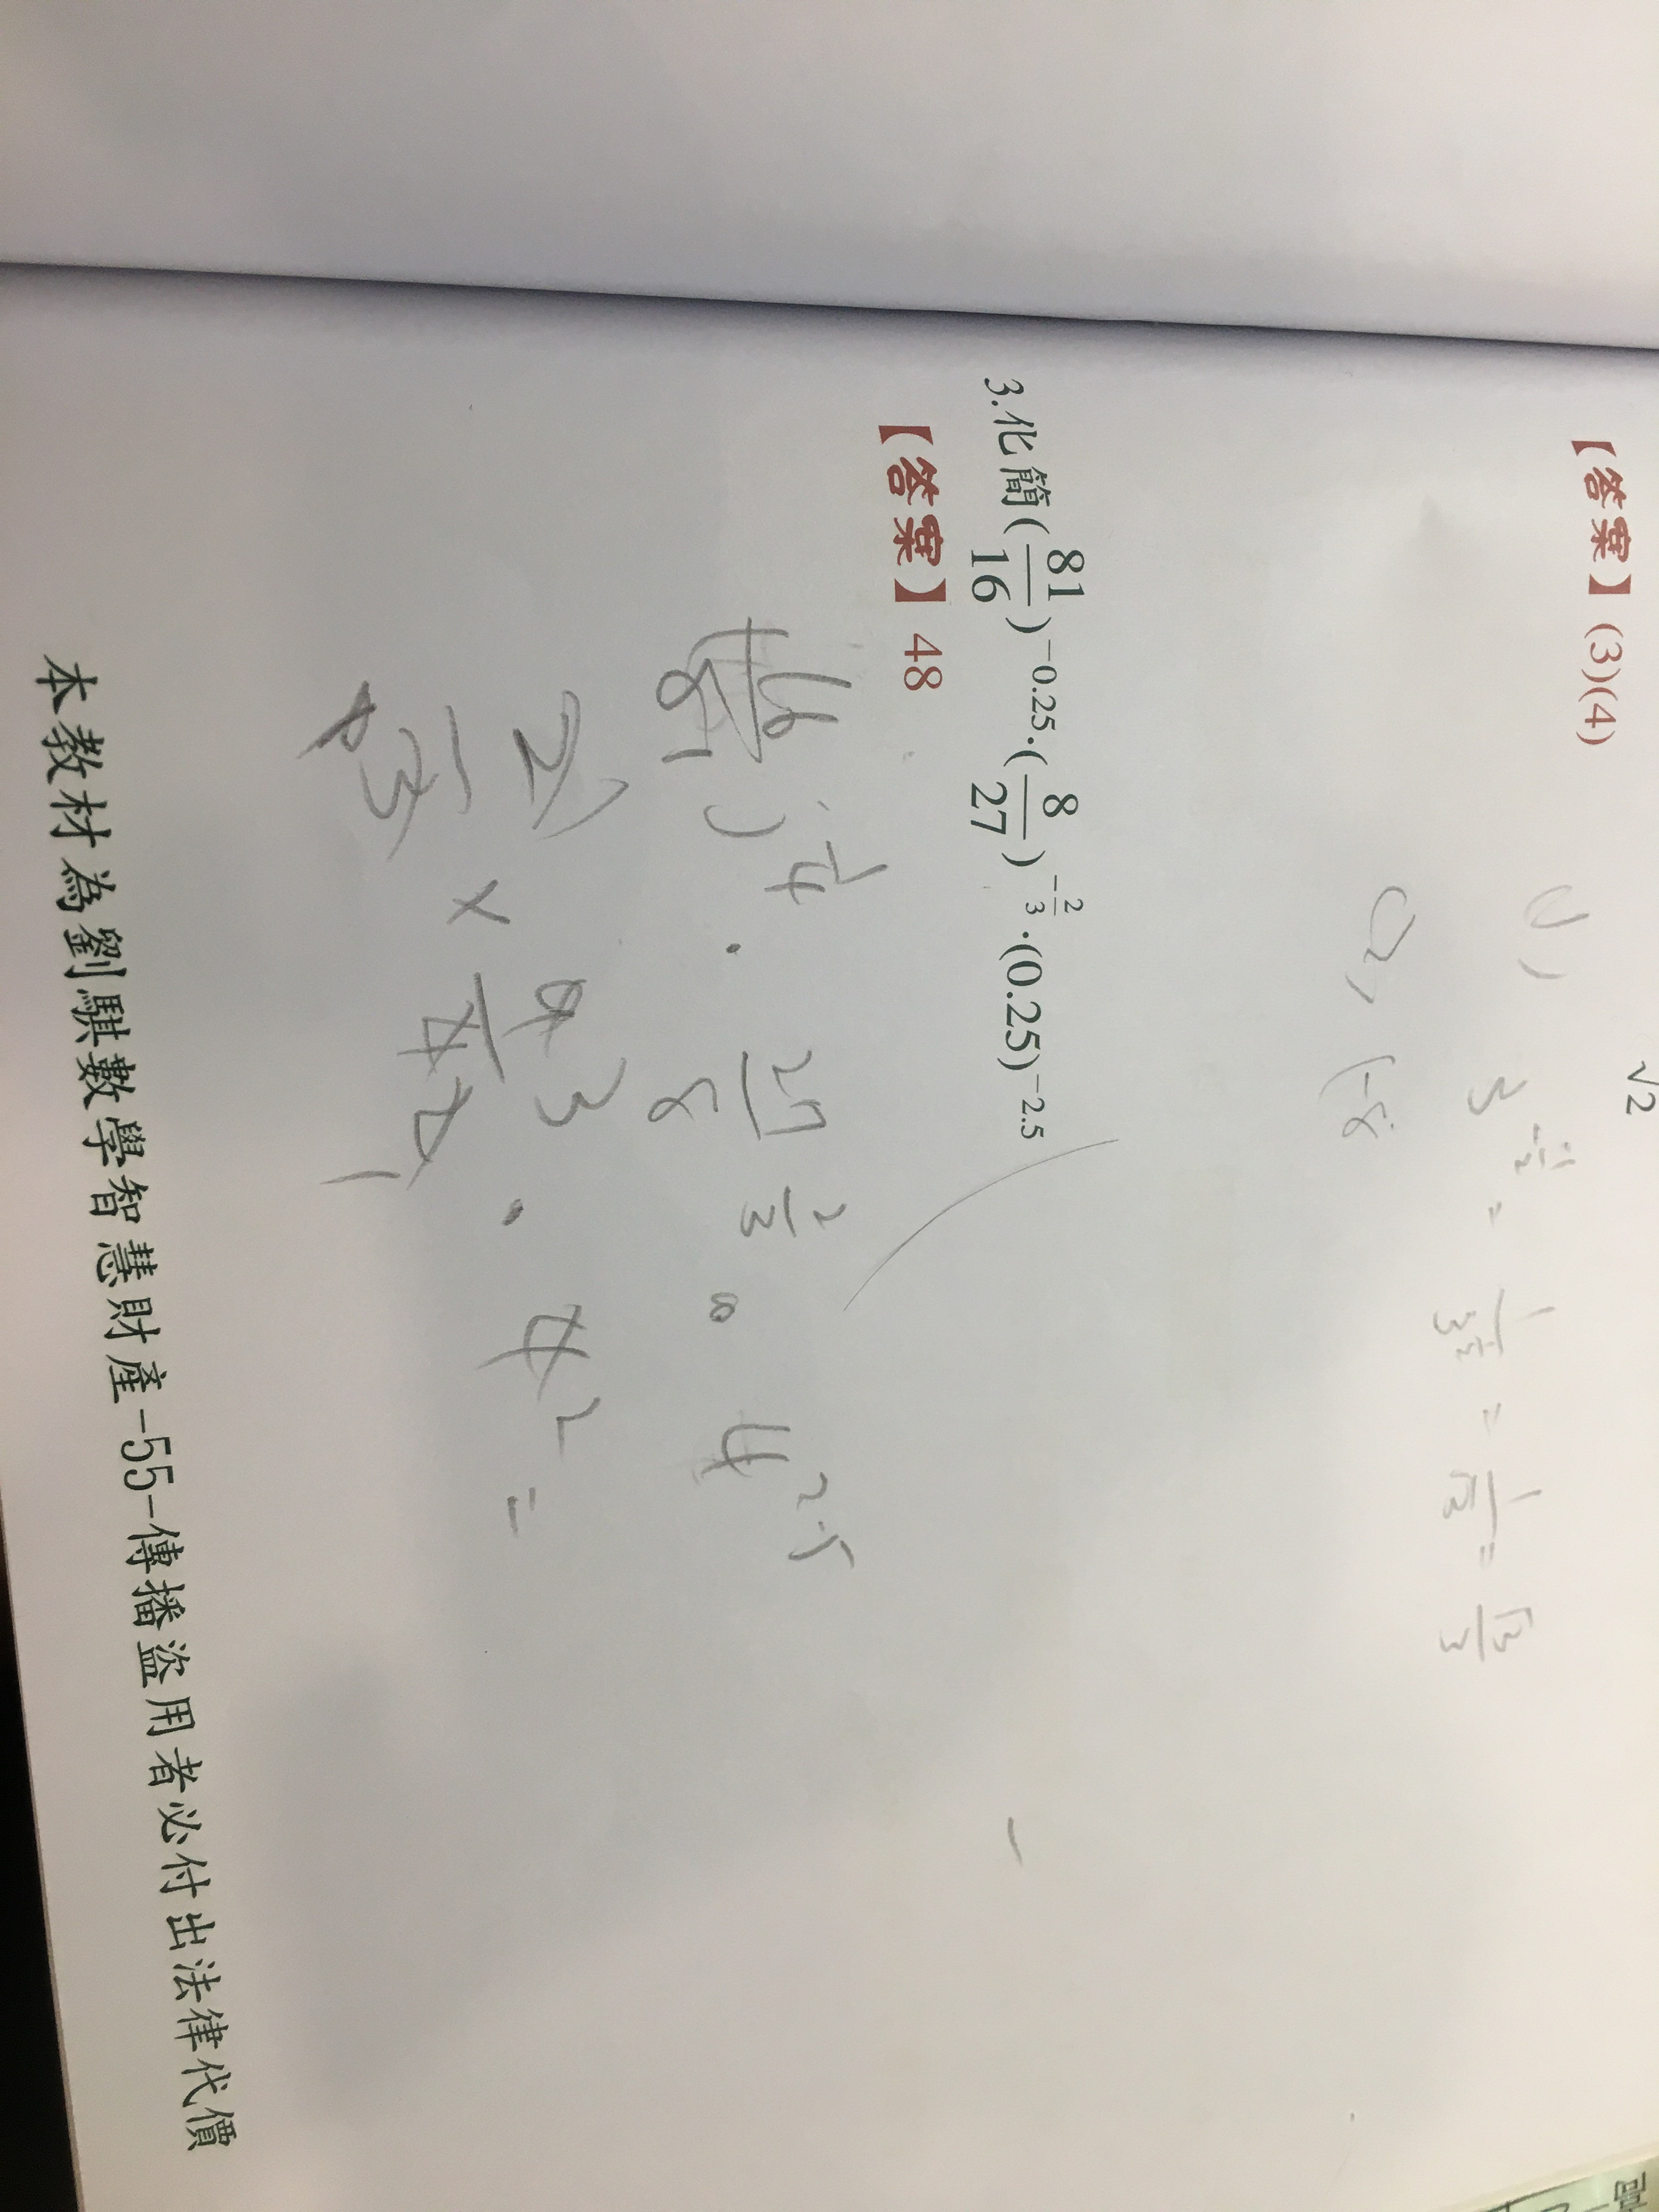 √2
【答案】(3)(4)
(1) 3^{-\frac{1}{2}} = \frac{1}{3^{\frac{1}{2}}} = \frac{1}{√3} = \frac{√3}{3}
(2) (-8
3.化簡(\frac{81}{16})^{-0.25}·(\frac{8}{27})^{-\frac{2}{3}}·(0.25)^{-2.5}
【答案】48
\frac{16}{81})^{\frac{1}{4}} · \frac{27}{8}^{\frac{2}{3}} · 4^{2.5}
本教材為劉騏數學智慧財產-55-傳播盜用者必付出法律代價